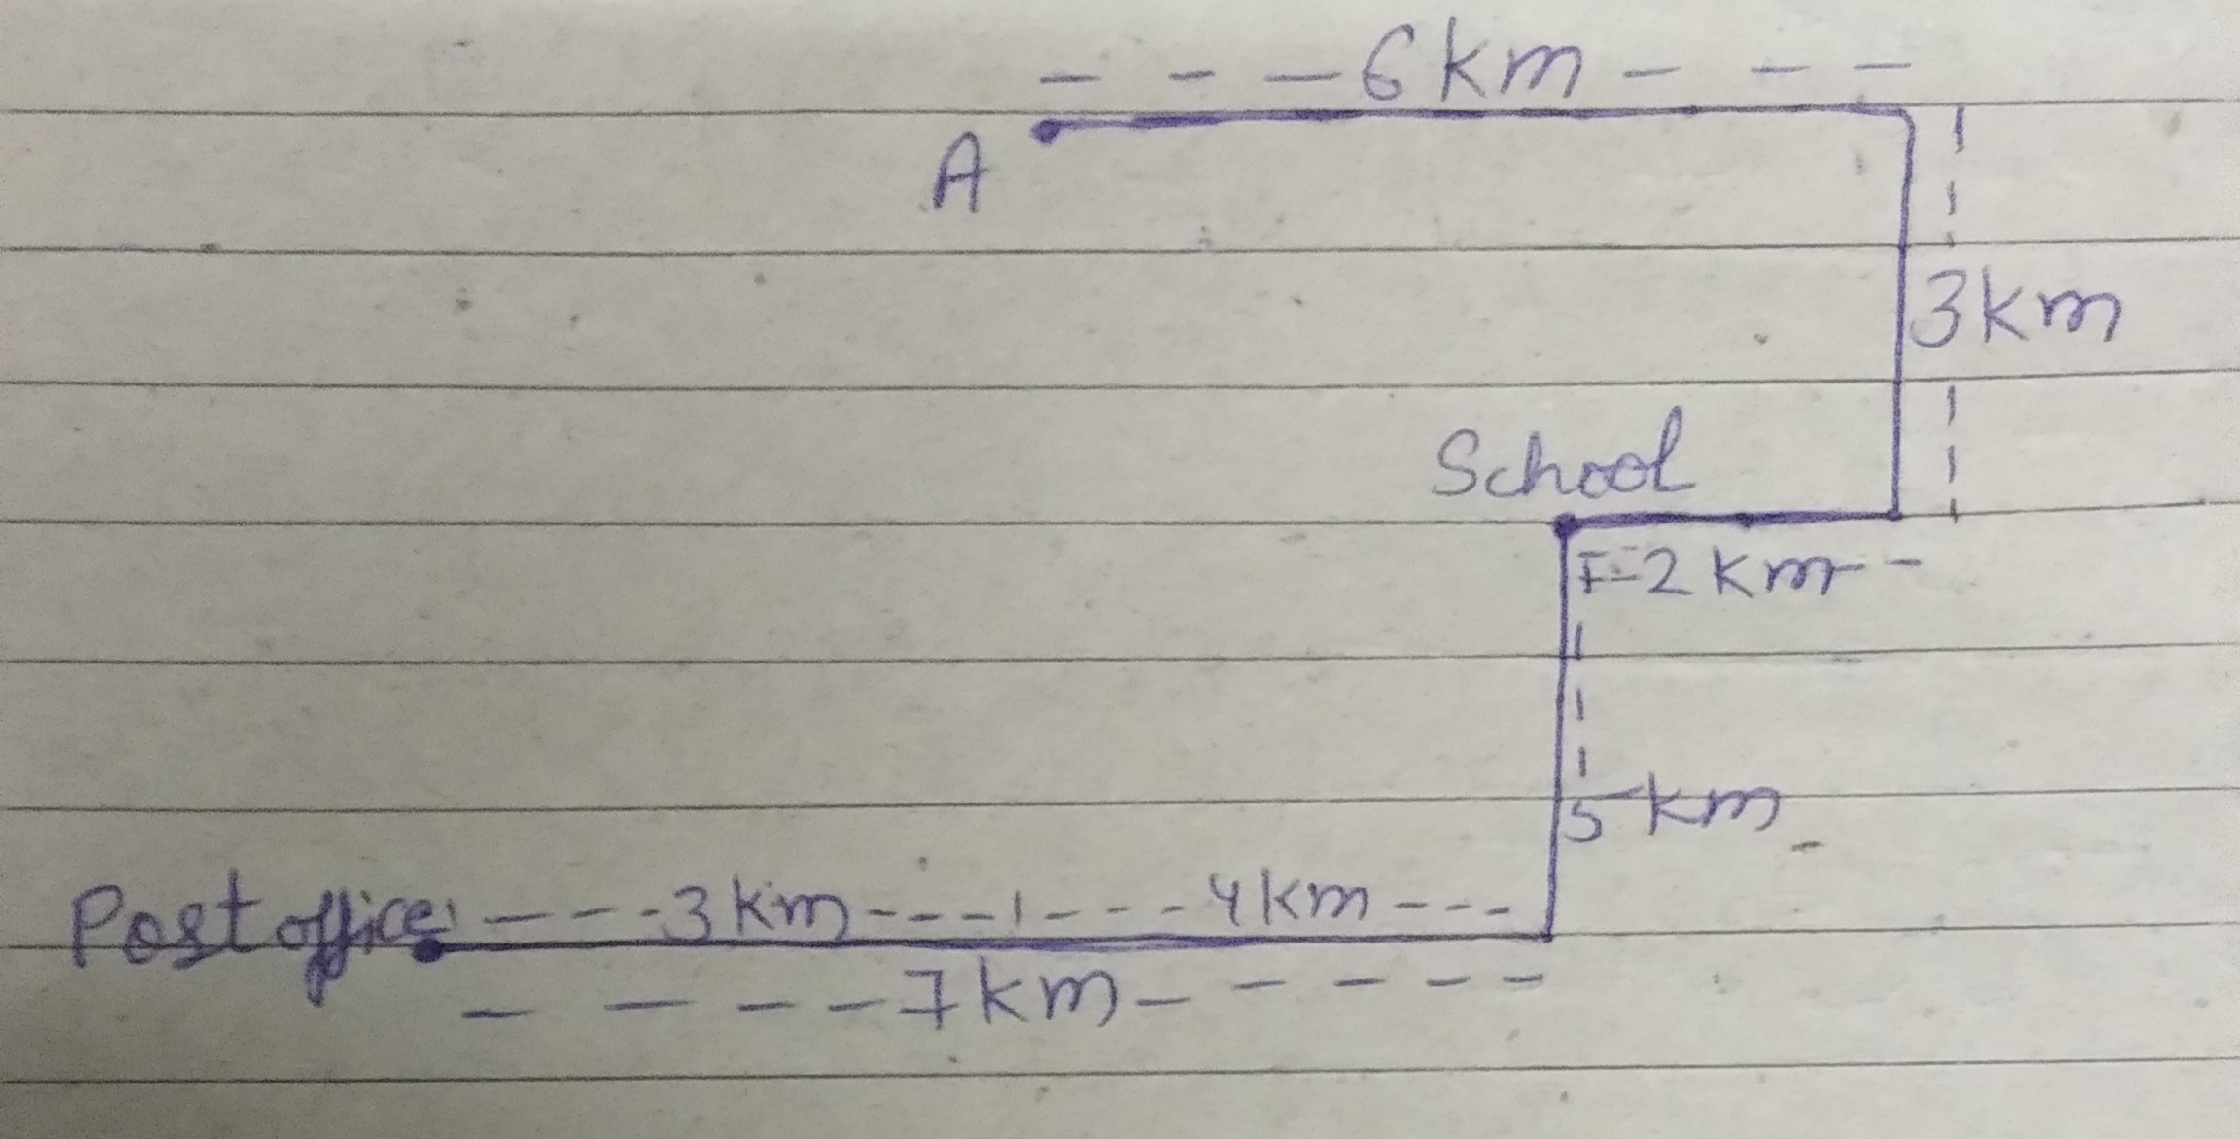 6 km
A
3 km
School
2 km
5 km
Post office
3 km
4 km
7 km